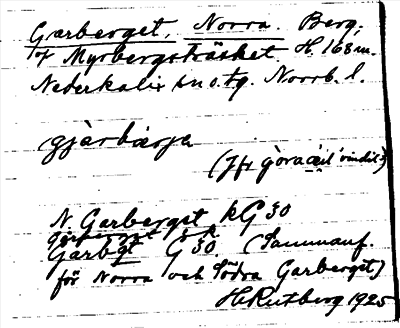 Garberget, Norra. Berg,
of Myrbergsträsket. H. 168 m.
Nederkalix sn o. tg. Norrb. l.
gjàrbærje
(Jfr gòra
N. Garberget kG 30
Garbgt G 30 (Sammanf.
för Norra och Södra Garberget)
H. Rutberg 1925